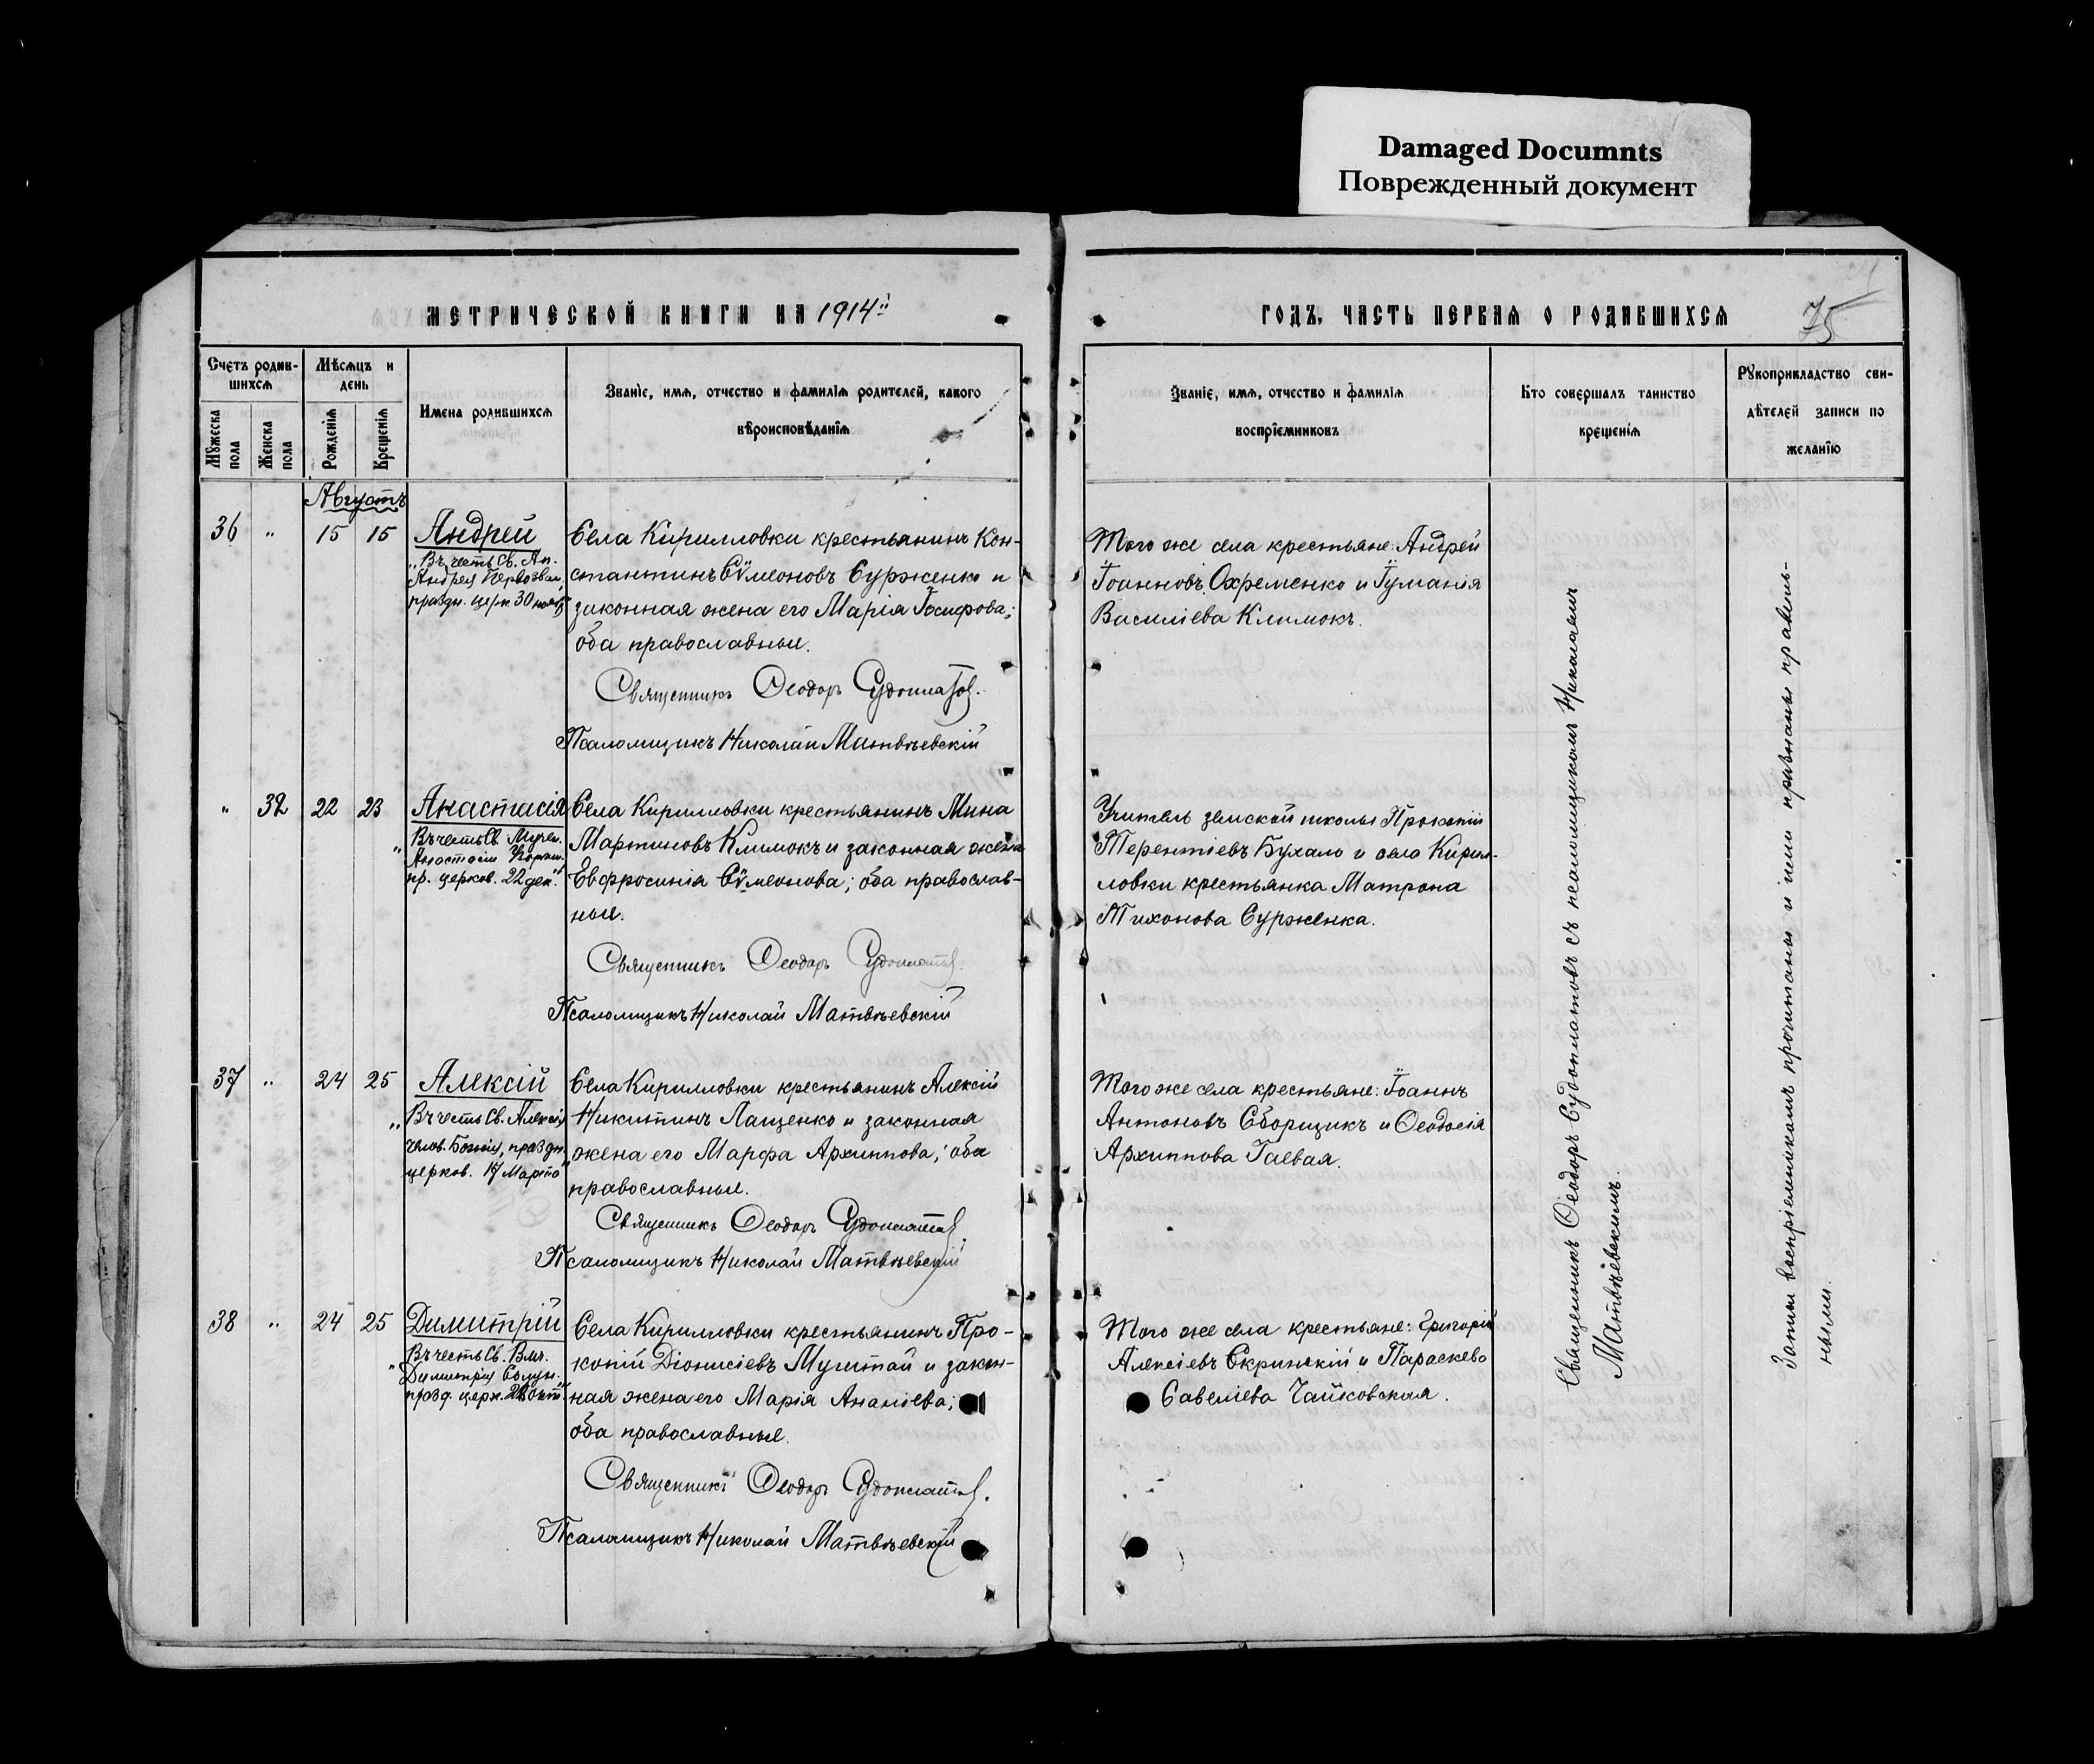 Damaged Documnts
Поврежденный документ
МЕТРИЧЕСКОЙ КНИГИ НА 1914й
ГОДЪ, ЧАСТЬ ПЕРВАЯ О РОДИВШИХСЯ
75
Счетъ родив-
шихся
Мѣсяцъ и
день
Мужеска
пола
Женска
пола
Рожденія
Крещенія
Имена родившихся
Званіе, имя, отчество и фамилія родителей, какого
вѣроисповѣданія
Званіе, имя, отчество и фамилія
воспріемниковъ
Кто совершалъ таинство
крещенія
Рукоприкладство сви-
дѣтелей записи по
желанію
Августъ
36 " 15 15 Андрей
„Въ честь Св. Ап.
Андрея Первозван.
праздн. церк 30 нояб."
Села Кирилловки крестьянинъ Кон-
стантинъ Сѵмеоновъ Сурженко и
законная жена его Марія Іосифова;
оба православные.
Священникъ Ѳеодоръ Судоплатовъ.
Псаломщикъ Николай Матвѣевскій
Того же села крестьяне: Андрей
Іоанновъ Охременко и Іуманія
Василіева Климокъ.
" 32 22 23 Анастасія
„Въ честь Св. Мучен.
Анастасіи Узорѣш.
пр. церков. 22 дек."
Села Кирилловки крестьянинъ Мина
Мартиновъ Климокъ и законная жена
Евфросинія Сѵмеонова; оба православ-
ные.
Священникъ Ѳеодоръ Судоплатовъ.
Псаломщикъ Николай Матвѣевскій
Учитель земской школы Прокопій
Терентіевъ Бухало и села Кирил-
ловки крестьянка Матрона
Тихонова Сурженка.
37 " 24 25 Алексій
„Въ честь Св. Алексія
Челов. Божія, праздн.
церков. 17 Марта"
Села Кирилловки крестьянинъ Алексій
Никитинъ Лащенко и законная
жена его Марфа Архиппова; оба
православные.
Священникъ Ѳеодоръ Судоплатовъ.
Псаломщикъ Николай Матвѣевскій
Того же села крестьяне: Іоаннъ
Антоновъ Сборщикъ и Ѳеодосія
Архиппова Гаевая.
38 " 24 25 Димитрій
„Въ честь Св. Влм.
Димитрія Солун.
празд. церк. 26 окт."
Села Кирилловки крестьянинъ Про-
копій Діонисіевъ Мушта й и закон-
ная жена его Марія Ананіева;
оба православные.
Священникъ Ѳеодоръ Судоплатовъ.
Псаломщикъ Николай Матвѣевскій
Того же села крестьяне: Григорій
Алексіевъ Скринскій и Параскева
Савеліева Чайковская.
Священникъ Ѳеодоръ Судоплатовъ съ псаломщикомъ Николаемъ
Матвѣевскимъ.
Записи воспріемникамъ прочитаны и ими признаны правиль-
ными.